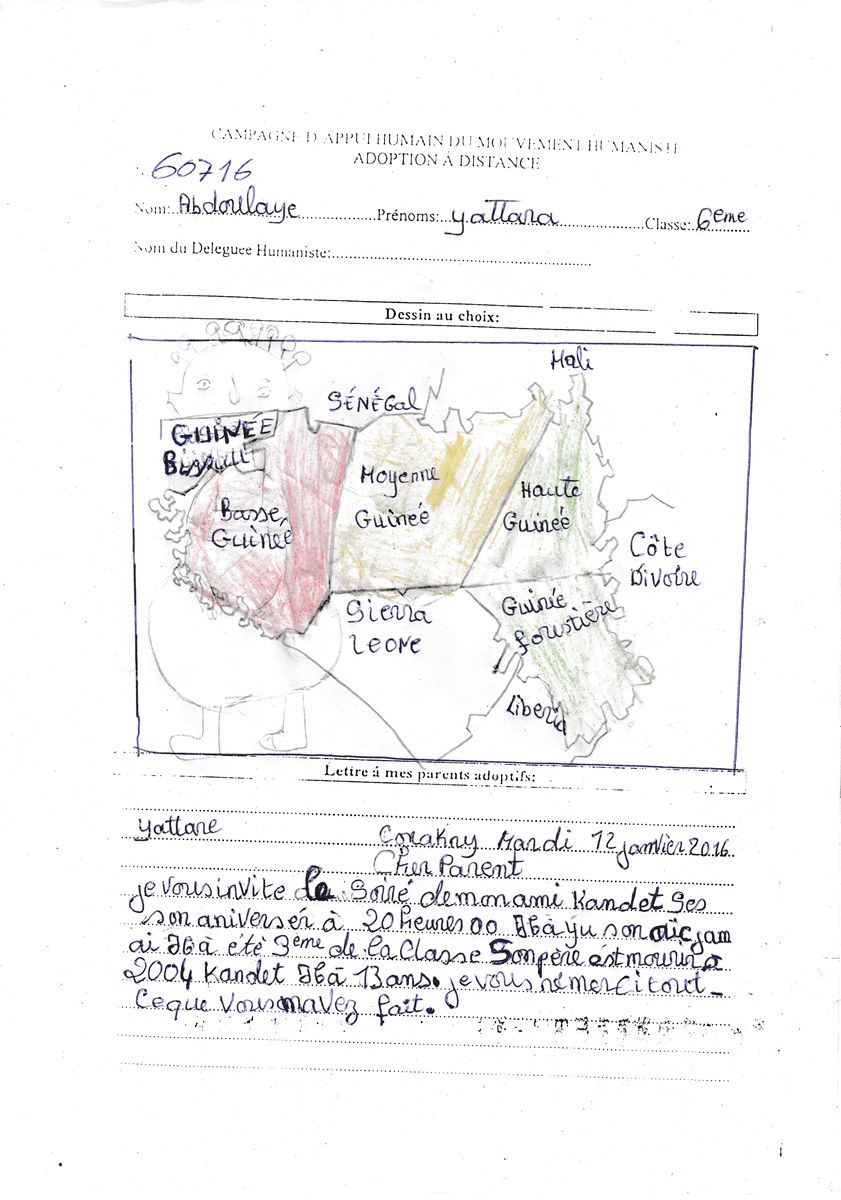 CAMPAGNE D'APPUI HUMAIN DU MOUVEMENT HUMANISTE
ADOPTION À DISTANCE
60716
Nom: Abdoulaye Prénoms: yattara Classe: 6eme
Nom du Deleguee Humaniste:
Dessin au choix:
Mali
SÉNÉGAL
GUINÉE
Moyenne
Guinée
Haute
Guinée
Basse
Guinée
Côte
Divoire
Sierra
Leone
Guinée
forestière
Liberia
Lettre á mes parents adoptifs:
yattare Conakry Mardi 12 janvier 2016
Cher Parent
je vous invite la Soiré de mon ami Kandet Ses
son aniversér à 20 heures 00 Il à yu son
ai Il à été 3eme de la Classe Son père est mourir à
2004 Kandet Il à 13 ans. je vous rémerci tout
Ceque vous mavez fait.